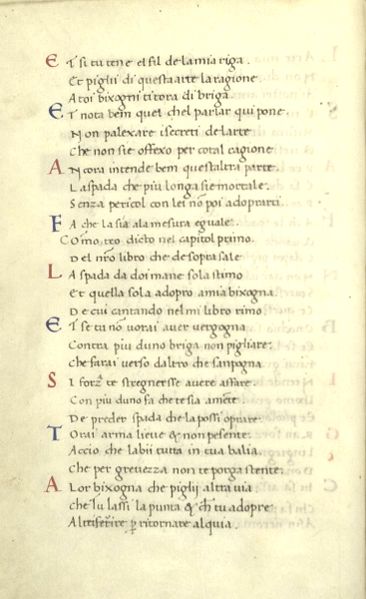 E T si tu tene el fil de la mia riga.
Et piglii di questa arte la ragione
A toi bixogni ti tora di briga
E T nota bem quel chel parlar qui pone.
Non palexare i secreti de larte
Che non sie offexo per cotal cagione
A Ncora intende bem questaltra parte.
La spada che piu longa sie mortale.
Senza pericol con lei nõ poi adoprarti.
F A che la sia ala mesura eguale.
Como, teo dicto nel capitol primo.
Del nr̃o libro che de sopra sale
L A spada da doi mane sola stimo
Et quella sola adopro a mia bixogna.
De cui cantando nel mi libro rimo
E T se tu nõ vorai aver vergogna
Contra piu duno briga non pigliare:
Che farai verso daltro che sanpogna.
S I forza te stregnesse avere affare.
Con piu duno fa che te sia amente
De preder spada che la possi oprare.
T Orai arma lieve & non pesente.
Accio che labii tutta in tua balia.
Che per grevezza non te porga stente.
A Lor bixogna che piglij altra via
Che tu lassi la punta & ch tu adopre
Altri ferire p ritornare al quia.